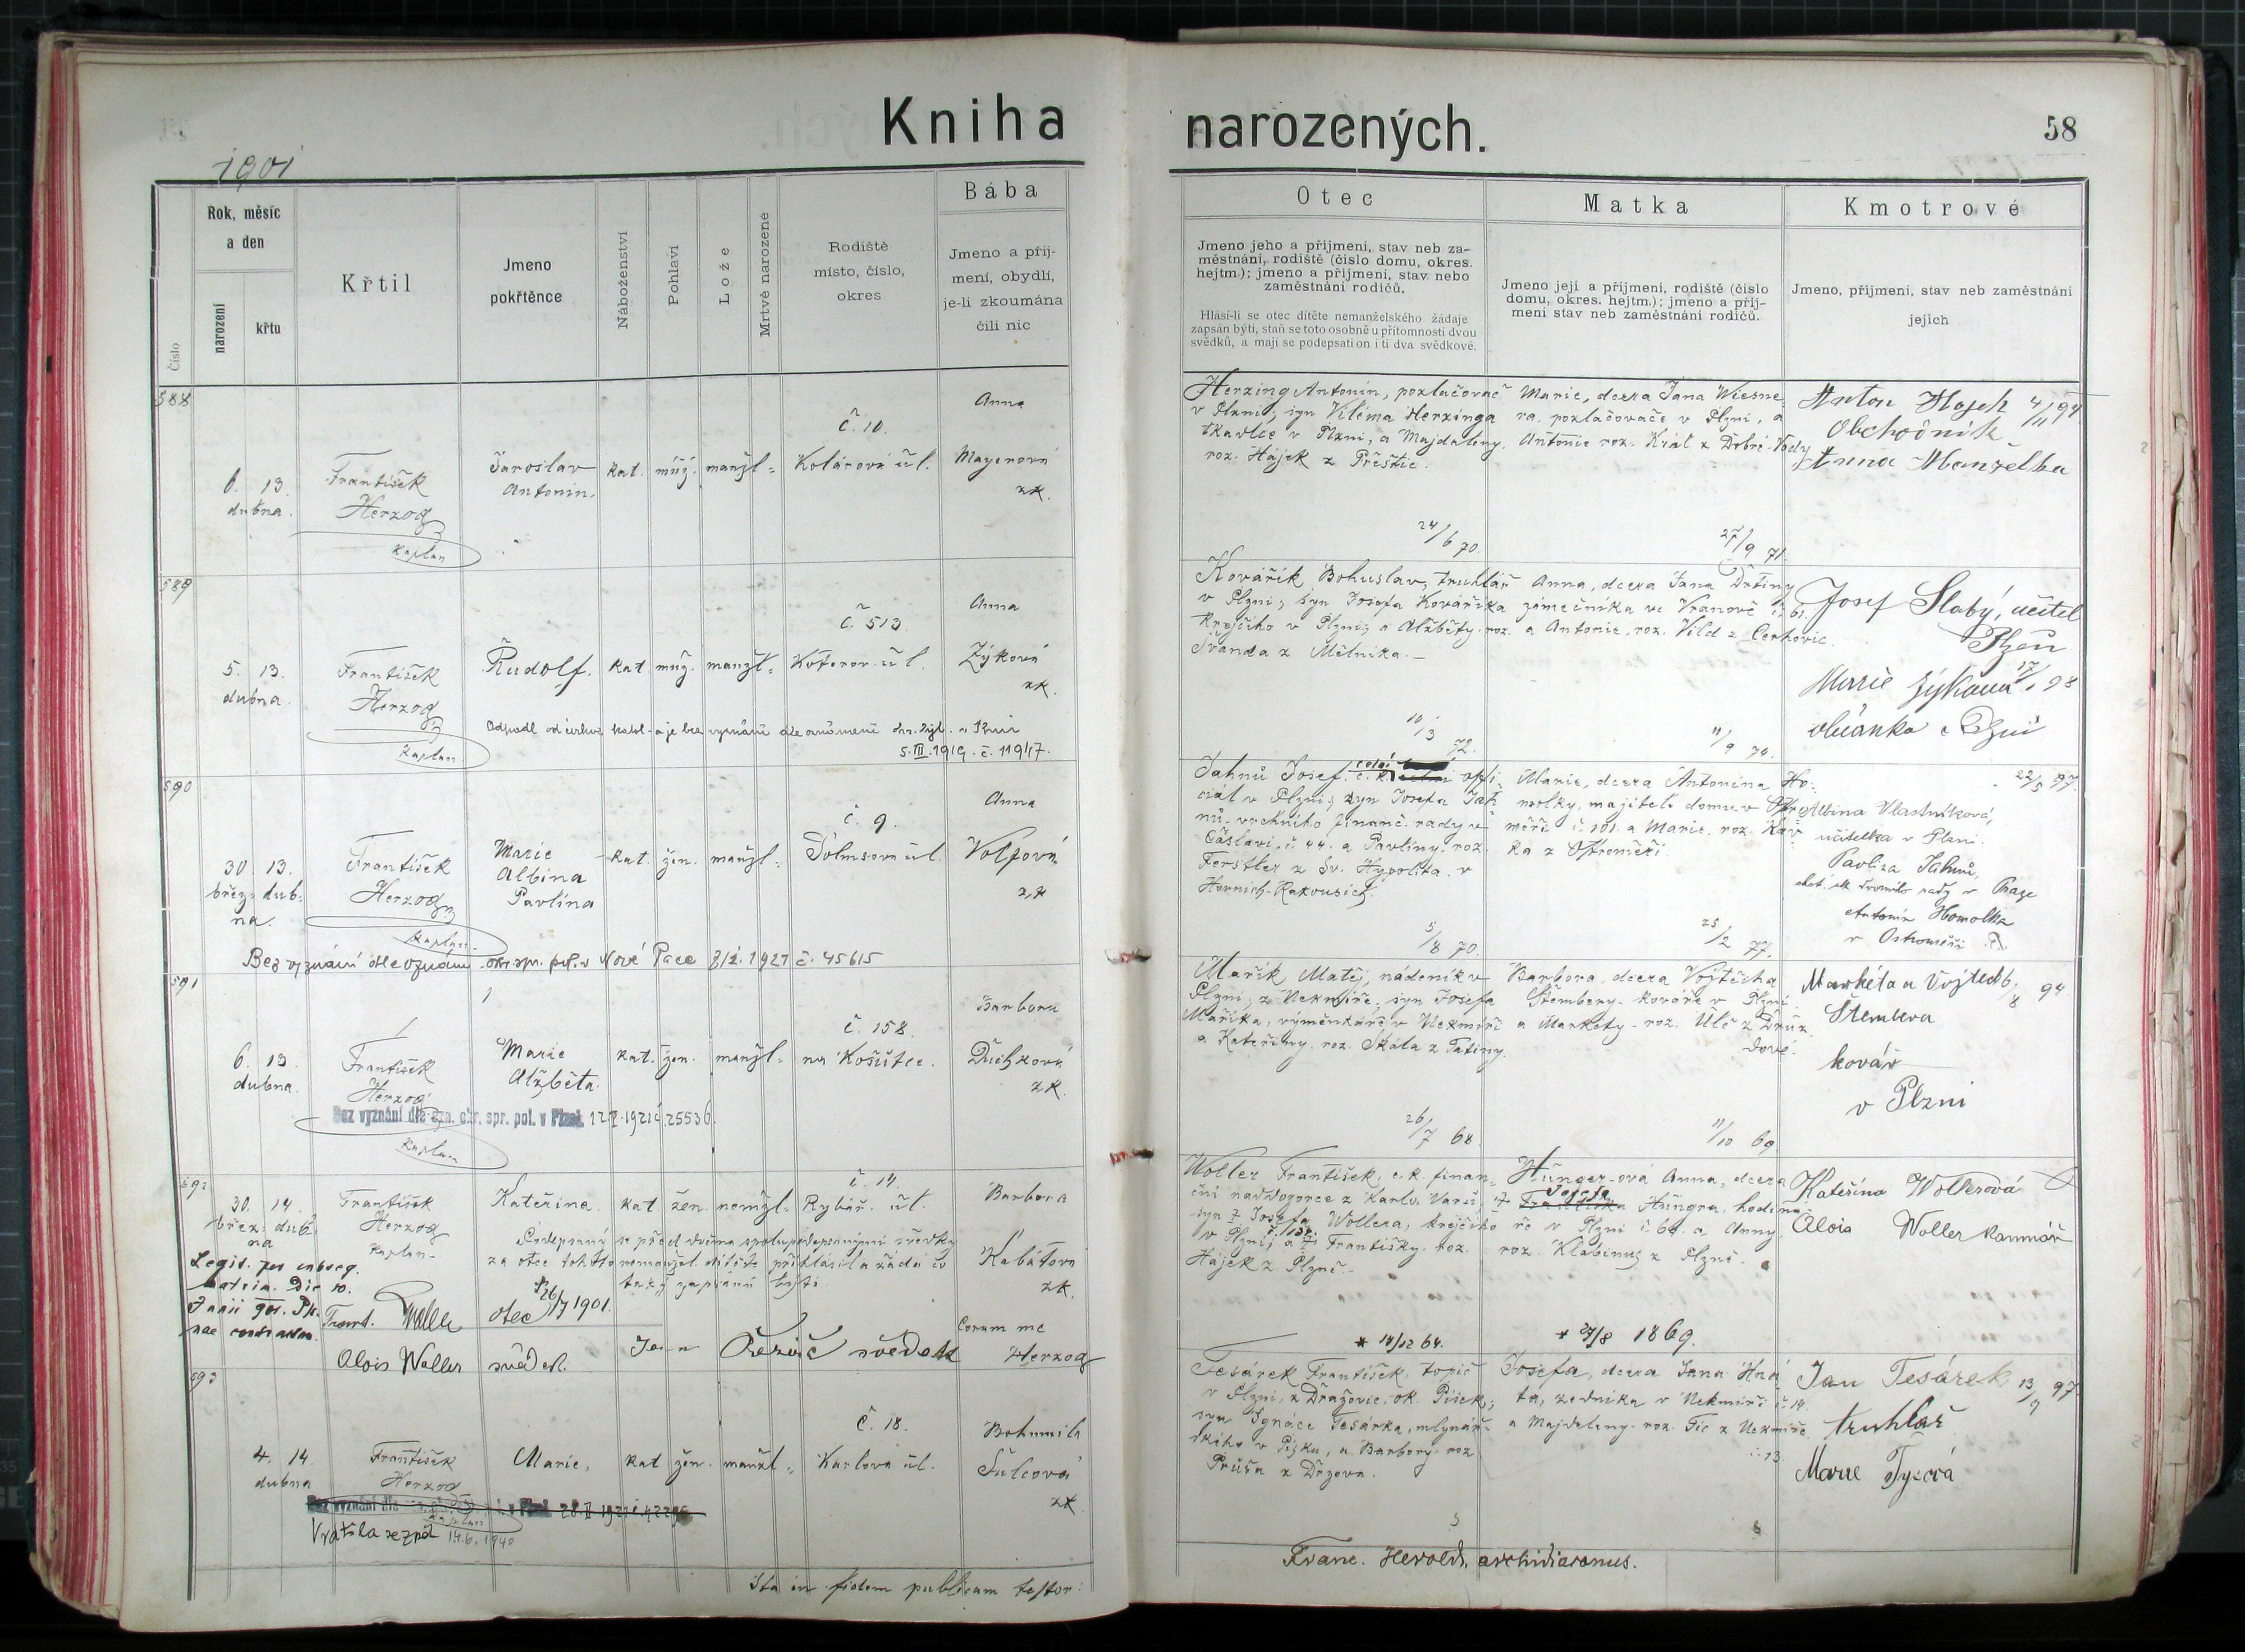 Kniha
narozených.
58
1901
Číslo
Rok, měsíc
a den
narození
křtu
Křtil
Jmeno
pokřtěnce
Náboženství
Pohlaví
Lože
Mrtvě narozené
Rodiště
místo, číslo,
okres
Bába
Jmeno a příj-
mení, obydlí,
je-li zkoumána
čili nic
Otec
Jmeno jeho a příjmení, stav neb za-
městnání, rodiště (číslo domu, okres.
hejtm.); jmeno a příjmení, stav nebo
zaměstnání rodičů.
Hlásí-li se otec dítěte nemanželského žádaje
zapsán býti, staň se toto osobně u přítomnosti dvou
svědků, a mají se podepsati on i ti dva svědkové.
Matka
Jmeno její a příjmení, rodiště (číslo
domu, okres. hejtm.); jmeno a příj-
mení stav neb zaměstnání rodičů.
Kmotrové
Jmeno, příjmení, stav neb zaměstnání
jejich
588
6. 13.
dubna.
František
Herzog
kaplan
Jaroslav
Antonín.
kat. muž. manžl=
č. 10.
Kolárova ul.
Anna
Mayerová
zk.
Herzing Antonín, pozlačovač
v Plzni, syn Viléma Herzinga
tkadlce v Plzni, a Majdaleny
roz. Hájek z Přeštic.
24/6 70.
Marie, dcera Jana Wiesne
ra, pozlačovače v Plzni, a
Antonie roz. Král z Dobré Vody
27/9 71.
Anton Hajek 4/11 94
Obchodník
Anna Manželka
589
5. 13.
dubna.
František
Herzog
kaplan
Rudolf.
kat. muž. manžl=
č. 513
Koterov. ul.
Anna
Zýková
zk.
Odpadl od církve katol. a je bez vyznání dle oznámení
5.III.1919. č. 11917.
Kovářík Bohuslav, truhlář
v Plzni, syn Josefa Kováříka
krejčího v Plzni, a Alžběty roz.
Švanda z Mělníka.
10/3 72.
Anna, dcera Jana Drtiny
zámečníka ve Vranově č. 61.
a Antonie, roz. Vild z Cerhovic.
11/9 74.
Josef Slabý, učitel
Plzeň
17/1 98
Marie Zýková
občanka v Plzni
590
30. 13.
břez= dub=
na.
František
Herzog
kaplan
Marie
Albina
Pavlina
kat. žen. manžl=
č. 9.
Tolmsova ul.
Anna
Volfová
zk
Bez vyznání dle oznám. okr. spr. pol. v Nové Pace 1921 č. 45615
Jahnů Josef, c. k. celní ofi-
ciál v Plzni, syn Josefa Jah-
nů vrchního finanč. rady v
Čáslavi č. 44. a Pavliny roz.
Ferstler z Sv. Hypolita v
Horních-Rakousích.
5/8 70.
Marie, dcera Antonína Ho-
molky, majitele domu v Ostro
měři č. 101. a Marie, roz. Kav
ka z Ostroměři
25/2 77.
22/5 97.
Albina Vlastníková,
učitelka v Plzni.
Pavlina Jahnů,
Antonín Homolka
v Ostroměři
591
6. 13
dubna.
František
Herzog
kaplan
Marie
Alžběta.
kat. žen. manžl=
č. 158.
na Košutce.
Barbora
Duchková
zk.
Bez vyznání dle ozn. okr. spr. pol. v Plzni. 1921 č. 25536.
Mařík Matěj, nádeník v
Plzni, z Nekmíře, syn Josefa
Maříka, výměnkáře v Nekmíři
a Kateřiny roz. Skála z Tatiny.
26/7 68.
Barbora, dcera Vojtěcha
Štembery - kováře v Plzni
a Markéty - roz. Ulč z Druz
dové.
11/10 69
Markéta a Vojtěch 6/8 94
Štembera
kovář
v Plzni
592
30. 14.
břez= dub=
na
František
Herzog
kaplan
Kateřina.
kat. žen. nemžl=
č. 14.
Rybář. ul.
Barbora
Kabátova
zk.
Podepsaný se před dvěma spolupodepsanými svědky
za otce tohoto nemanžel. dítěte přihlásil a žádá co
taký zapsánu býti.
Legit. per subseq.
matrim. Die 10.
Junii 901. Pl.
Frant. Woller otec 1901.
Alois Woller svědek. Jan svědek
Coram me
Herzog
Woller František, c. k. finan=
ční naddozorce z Karlo. Varů,
syn † Josefa Wollera, krejčího
v Plzni č. 132, a † Františky roz.
Hájek z Plzně.
* 14/12 64.
Hünger-ová Anna, dcera
† Františka Josefa Hüngra, hodina
ře v Plzni č. 69. a Anny
roz. Klabinus z Plzně.
* 27/8 1869.
Kateřina Wollerová
Alois Woller
593
4. 14.
dubna
František
Herzog
kaplan
Marie,
kat. žen. manžl=
č. 18.
Karlova ul.
Bohumila
Šulcová
zk
Vrátila se zpět 14.6.1940
Tesárek František, topič
v Plzni, z Dražovic, ok. Písek,
syn Ignáce Tesárka, mlynář=
ského v Písku, a Barbory roz.
Průša z Držova.
Josefa, dcera Jana Hná
ta, zedníka v Nekmíři č. 14.
a Majdaleny roz. Tic z Nekmíře
č. 13.
Jan Tesárek 13/9 97
truhlář
Marie Tycová
Ita in fidem publicam testor:
Franc. Herold, archidiaconus.